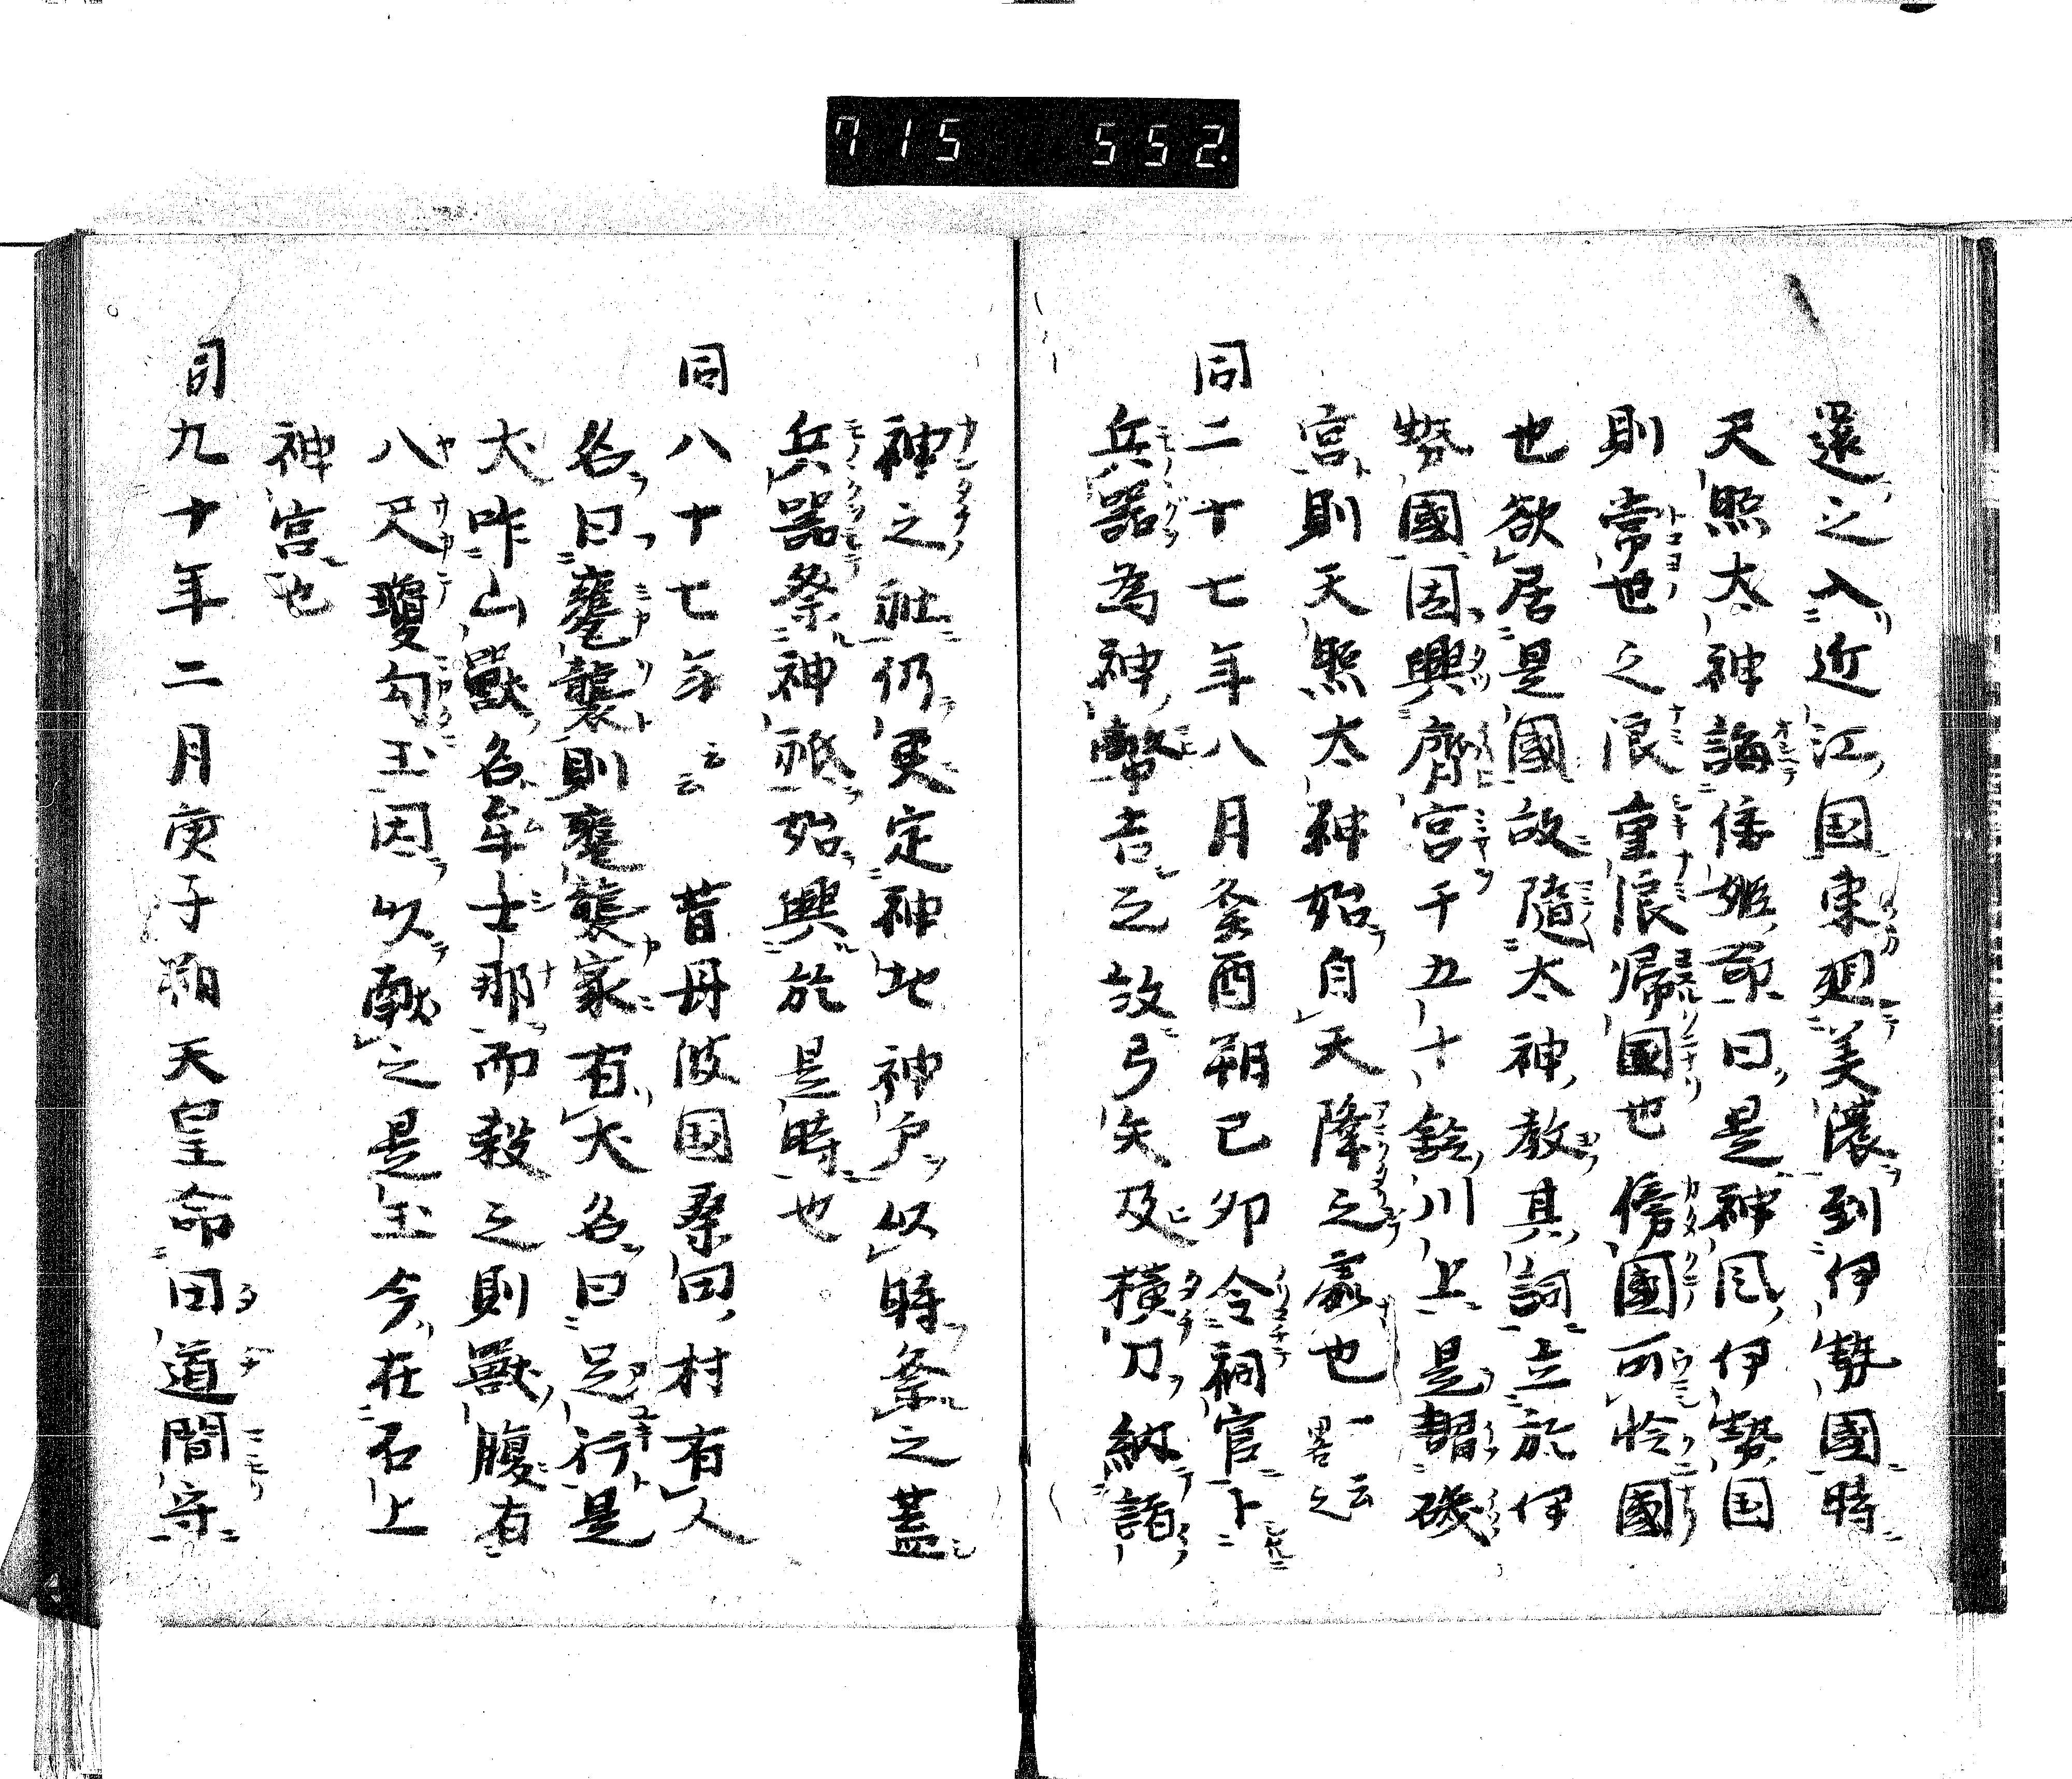 715 552.
還之入近江国東廻美濃到伊勢國時
天照太神誨倭姫命曰是神風伊勢国
則常世之浪重浪歸國也傍國可怜國
也欲居是國故隨太神教其詞立於伊
勢國因興齊宮于五十鈴川上是謂磯
宮則天照太神始自天降之處也一云畧之
同二十七年八月癸酉朔己卯令祠官卜
兵器為神幣吉之故弓矢及横刀納諸
神之社仍更定神地神戸以時祭之蓋
兵器祭神祇始興於是時也
同八十七年云云昔丹波国桑田村有人
名曰甕襲則甕襲家有犬名曰足行是
犬咋山獸名牟士那而殺之則獸腹有
八尺瓊勾玉因以献之是玉今在石上
神宮也
同九十年二月庚子朔天皇命田道間守